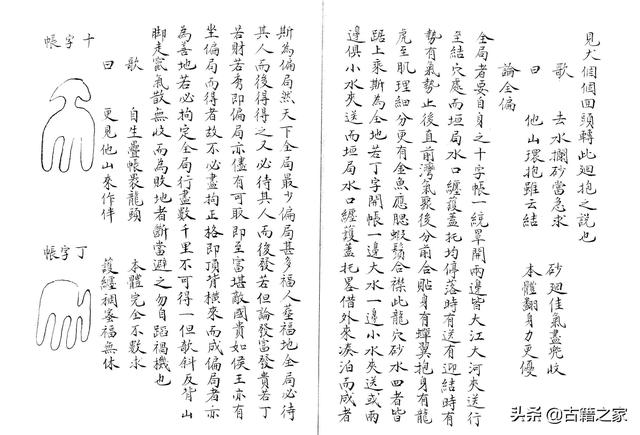 見犬個個回頭轉此迴抱之說也
歌 去水攔砂當急求 砂迴佳氣盡兜收
曰 他山環抱雖云結 本體翻身力更優
論全偏
全局者要自身之十字帳一統單開兩邊皆大江大河夾送行
至結穴處而垣局水口纏護蓋托均停落時有送有迎結時有
勢有氣勢止後直前灣氣聚後分前合貼身有蟬翼抱身有龍
虎至肌理細分更有金魚應腮蝦鬚合襟此龍穴砂水四者皆
踞上乘斯為全地若丁字開帳一邊大水一邊小水夾送或兩
邊俱小水夾送而垣局水口纏護蓋托畧借外來湊泊而成者
斯為偏局然天下全局最少偏局甚多福人塟福地全局必待
其人而後得得之又必待其人而後發若但論發富發貴若丁
若財若秀即偏局亦儘有可取即至富堪敵國貴如侯王亦有
坐偏局而得者故不必盡拘正格即頂背橫來而成偏局者亦
為善地若必拘定全局行盡數千里不可得一但欹斜反背山
脚走竄氣散無收而為敗地者斷當避之勿自蹈禍機也
歌 自生疊帳裝龍頭 本體完全不歎求
曰 更見他山來作伴 護纏稠密福無休
十字帳
丁字帳
头条@古籍之家